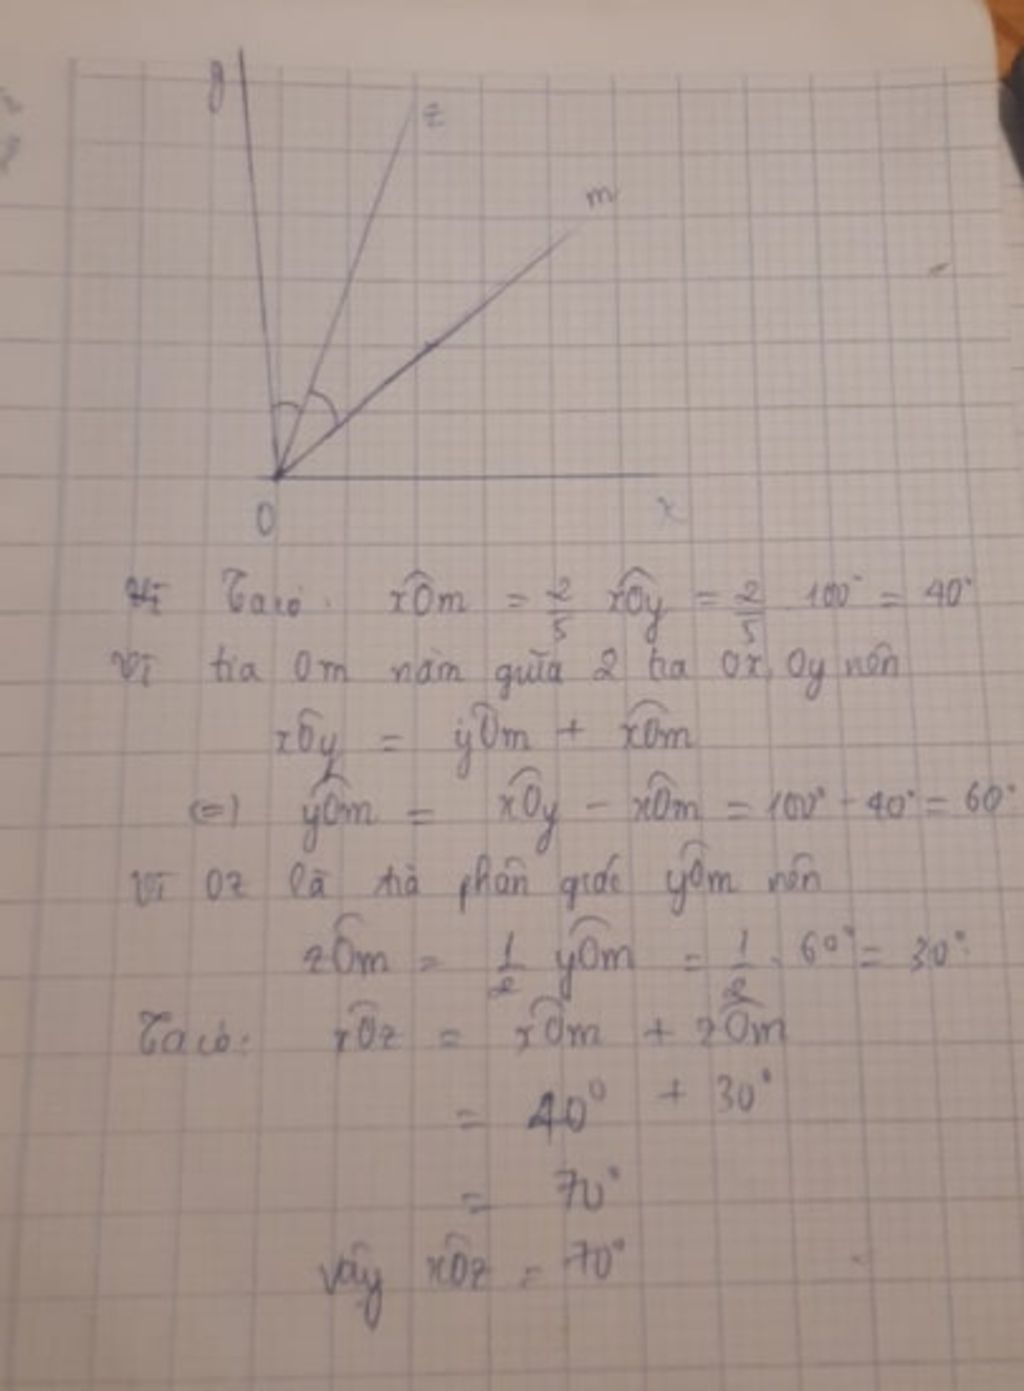 y
z
m
O
x
Ta có: xÔm = 2/5 xÔy = 2/5 100° = 40°
Vì tia Om nằm giữa 2 tia Ox, Oy nên
xÔy = yÔm + xÔm
(=) yÔm = xÔy - xÔm = 100° - 40° = 60°
Vì Oz là tia phân giác yÔm nên
zÔm = 1/2 yÔm = 1/2 . 60° = 30°
Ta có: xÔz = xÔm + zÔm
= 40° + 30°
= 70°
Vậy xÔz = 70°